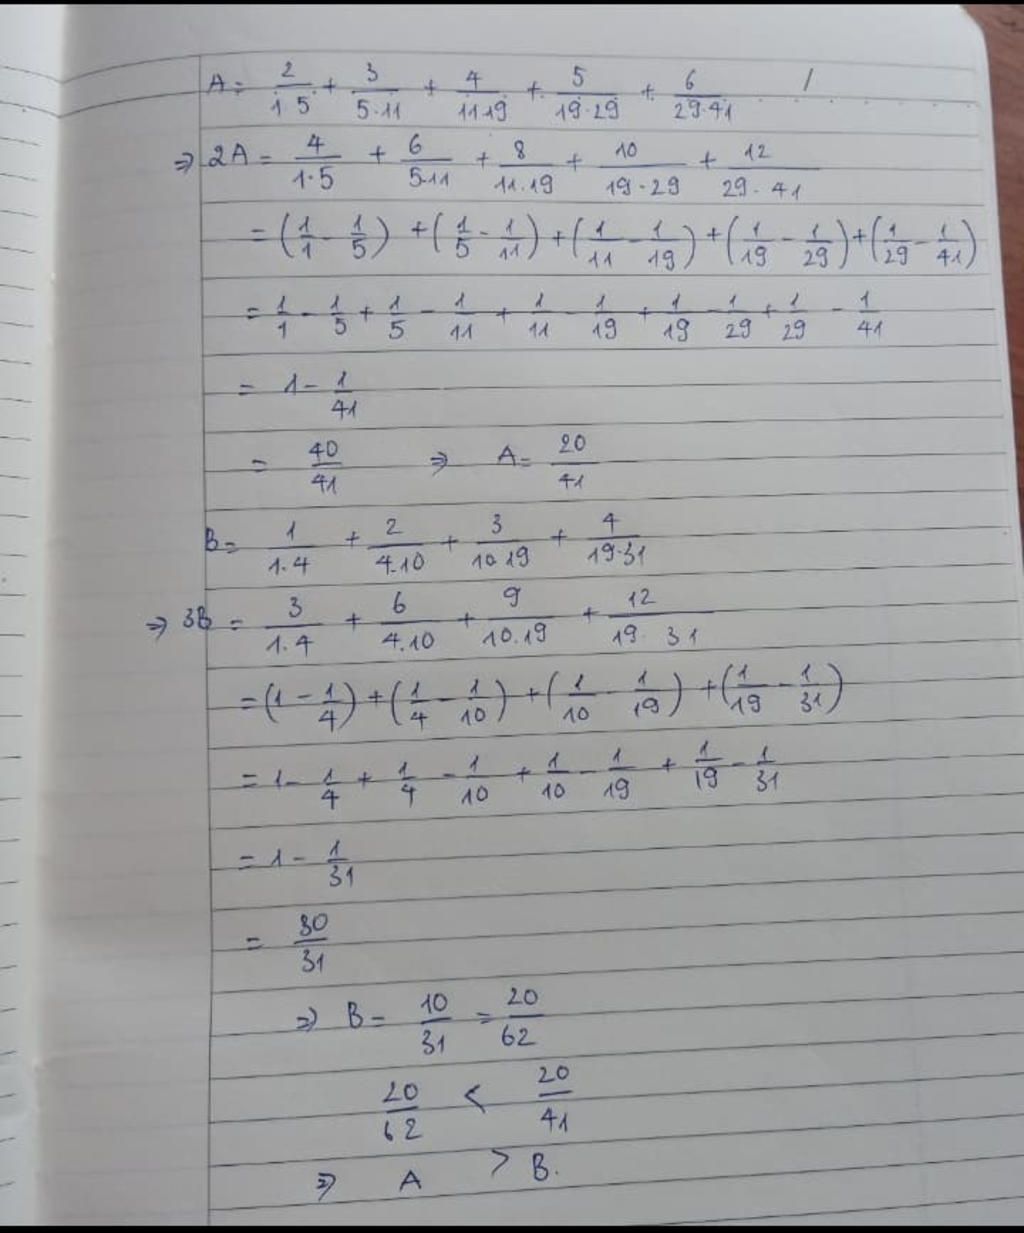 A = 2/1·5 + 3/5·11 + 4/11·19 + 5/19·29 + 6/29·41 /
⇒ 2A = 4/1·5 + 6/5·11 + 8/11·19 + 10/19·29 + 12/29·41
= (1/1 - 1/5) + (1/5 - 1/11) + (1/11 - 1/19) + (1/19 - 1/29) + (1/29 - 1/41)
= 1/1 - 1/5 + 1/5 - 1/11 + 1/11 - 1/19 + 1/19 - 1/29 + 1/29 - 1/41
= 1 - 1/41
= 40/41 ⇒ A = 20/41
B = 1/1·4 + 2/4·10 + 3/10·19 + 4/19·31
⇒ 3B = 3/1·4 + 6/4·10 + 9/10·19 + 12/19·31
= (1 - 1/4) + (1/4 - 1/10) + (1/10 - 1/19) + (1/19 - 1/31)
= 1 - 1/4 + 1/4 - 1/10 + 1/10 - 1/19 + 1/19 - 1/31
= 1 - 1/31
= 30/31
⇒ B = 10/31 = 20/62
20/62 < 20/41
⇒ A > B.